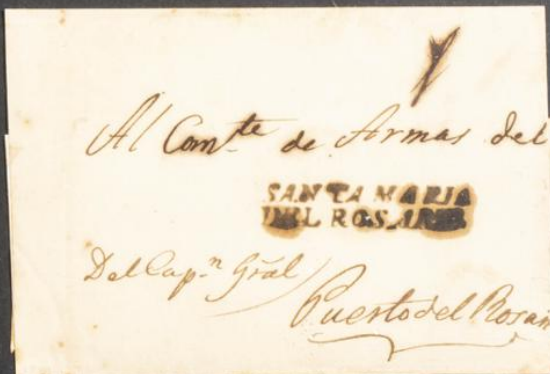 Al Com.te de Armas del
SANTA MARIA
DEL ROSARIO
Del Cap.n Gr̃al
Puerto del Rosar